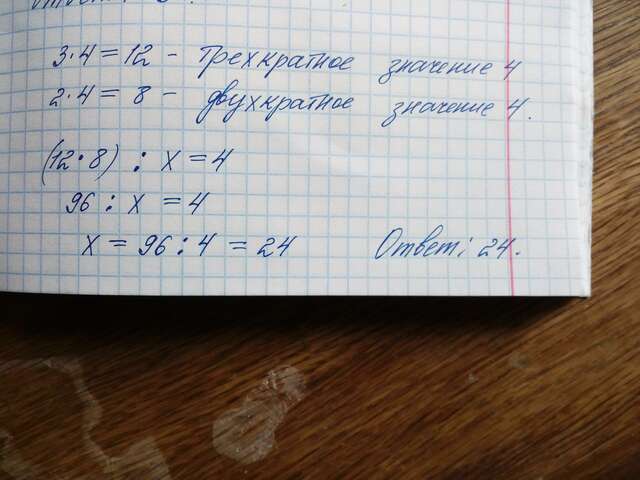 3·4=12 - трехкратное значение 4
2·4= 8 - двухкратное значение 4.
(12·8) : x = 4
96 : x = 4
x = 96 : 4 = 24 Ответ: 24.